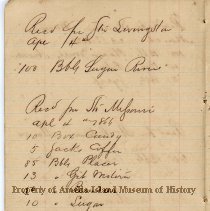 Recd per Str Livingston
Apr 4
100 Bbls Sugar
Recd per Str Missouri
Apl 4 1866
10 Box Candy
5 Sacks Coffee
85 Bbls
13 "
Property of Amelia Island Museum of History
10 " Sugar